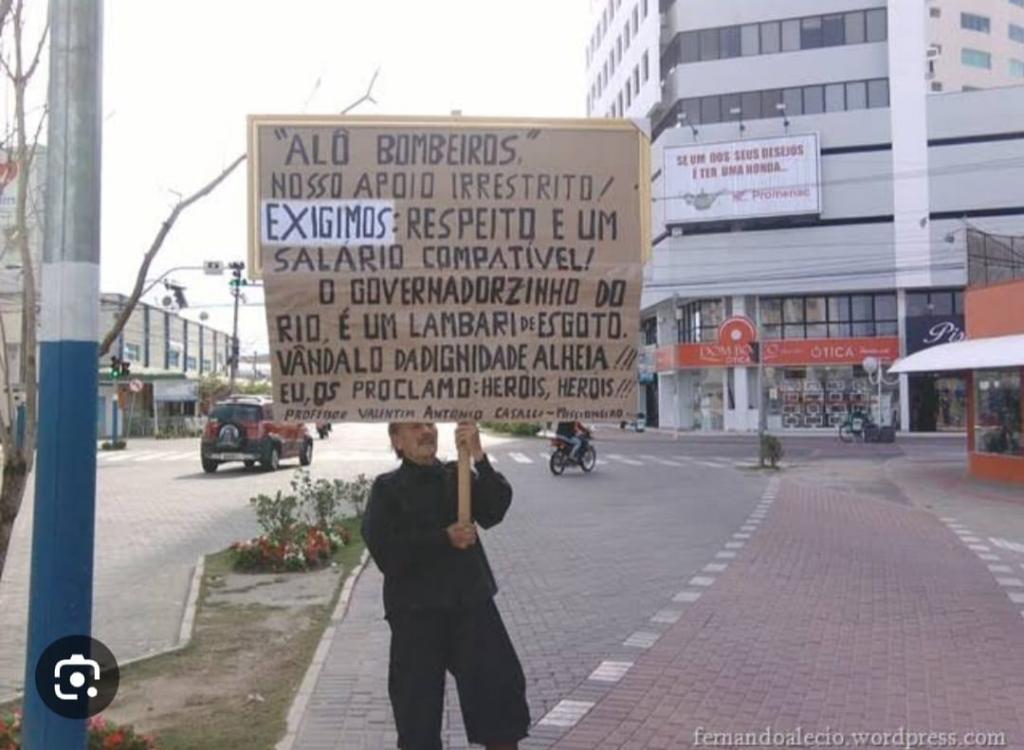 "ALÔ BOMBEIROS,"
NOSSO APOIO IRRESTRITO!
EXIGIMOS: RESPEITO E UM
SALÁRIO COMPATÍVEL!
O GOVERNADORZINHO DO
RIO, É UM LAMBARI DE ESGOTO.
VÂNDALO DA DIGNIDADE ALHEIA!!!
EU, OS PROCLAMO: HEROIS, HEROIS!!!
PROFESSOR VALENTIM ANTONIO CASALLE - MISSIONEIRO
SE UM DOS SEUS DESEJOS
É TER UMA HONDA...
Promenac
DOM BO
ÓTICA
ÓTICA
fernandoalecio.wordpress.com